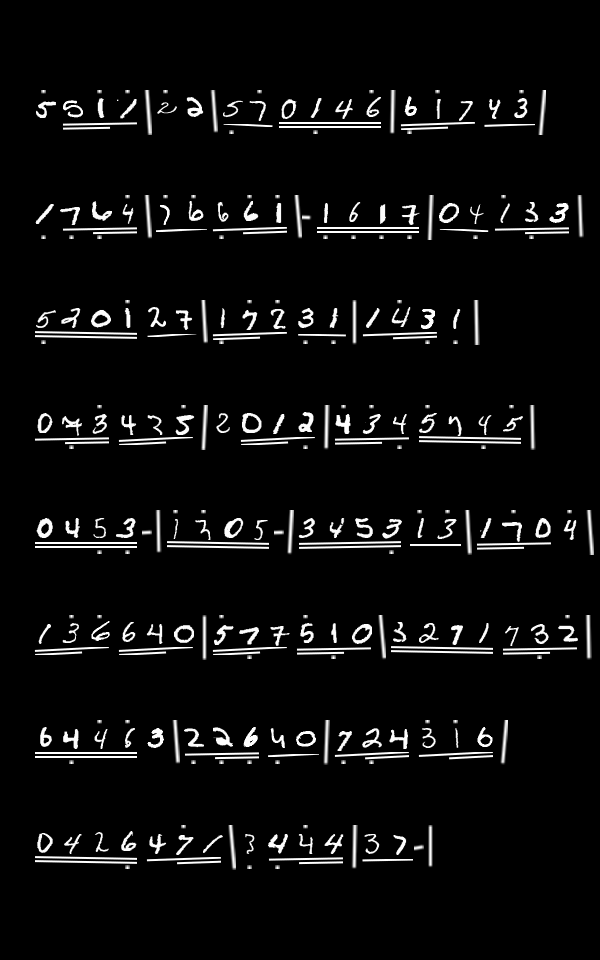 5 5 1 1 | 2 2 | 5 7 0 1 4 6 | 6 1 7 4 3 |
1 7 6 4 | 7 6 6 6 1 | - 1 6 1 7 | 0 4 1 3 3 |
5 2 0 1 2 7 | 1 7 2 3 1 | 1 4 3 1 |
0 7 3 4 3 5 | 2 0 1 2 | 4 3 4 5 7 4 5 |
0 4 5 3 - | 1 3 0 5 - | 3 4 5 3 1 3 | 1 7 0 4 |
1 3 6 6 4 0 | 5 7 7 5 1 0 | 3 2 7 1 7 3 2 |
6 4 4 6 3 | 2 2 6 4 0 | 7 2 4 3 1 6 |
0 4 2 6 4 7 1 | 3 4 4 4 | 3 7 - |